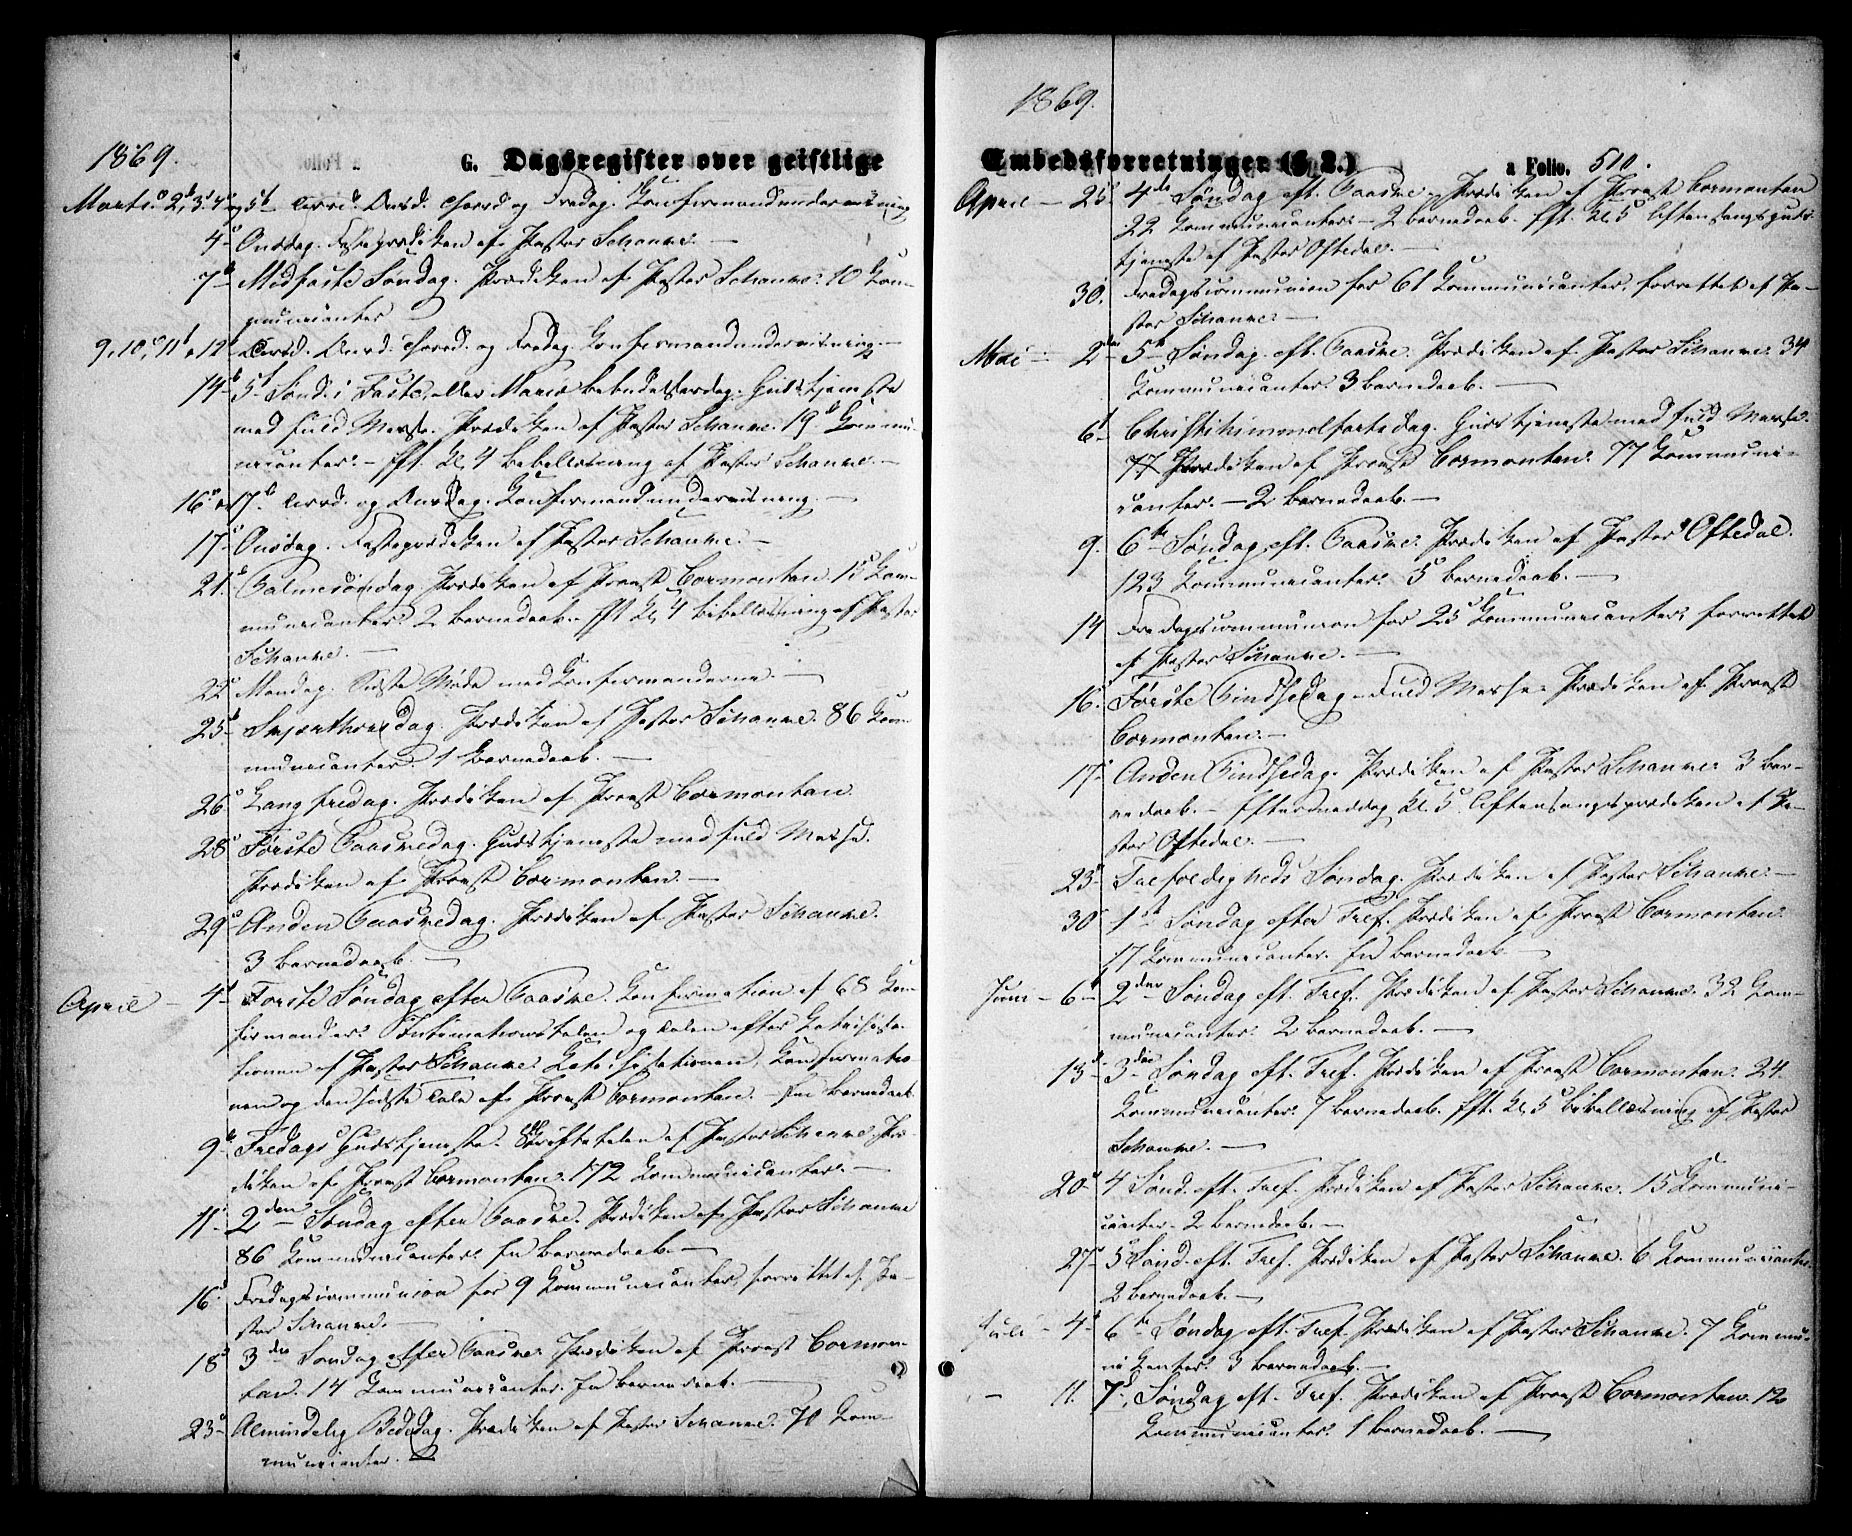 1869.
G. Dagsregister over geistlige
Marts 2, 3, 4 og 5t Tirsd. Onsd. Thorsd. og Fredag. Konfirmandundervisning
4 Onsdag. Fasteprædiken af Pastor Schanke. —
7 Midfaste Søndag. Prædiken af Pastor Schanke. 10 Kom-
munikanter
9, 10, 11 o 12 Tirsd. Onsd. Thorsd. og Fredag Konfirmandundervisning. —
14 5t Sønd. i Faste, eller Mariæ Bebudelsesdag. Gudstjeneste
med fuld Messe. Prædiken af Pastor Schanke. 19 Kommu-
nicanter. — Eft. Kl. 4 Bibellæsning af Pastor Schanke. —
16 og 17. Tirsd. og Onsdag. Konfirmandundervisning. —
17 Onsdag. Fasteprædiken af Pastor Schanke. —
21. Palmesøndag Prædiken af Provst Cormontan. 15 Kom-
municanter. 2 Barnedaab. Eft Kl. 4 bibellæsning af Pastor
Schanke. —
22 Mandag. Sidste Møde med Konfirmanderne. —
25 Skjærthorsdag. Prædiken af Pastor Schanke. 86 Kom-
municanter. 1 Barnedaab. —
26 Langfredag. Prædiken af Provst Cormontan.
28 Første Paaskedag. Gudstjeneste med fuld Messe.
Prædiken af Provst Cormontan. —
29 Anden Paaskedag. Prædiken af Pastor Schanke.
3 Barnedaab. —
April — 4 Første Søndag efter Paaske. Konfirmation af 68 Kon-
firmander. Intimationstalen og Talen efter Katechisa-
tionen af Pastor Schanke. Katechisationen, Konfirmatio-
nen og den sidste Tale af Provst Cormontan. — En Barnedaab
9 Fredags Gudstjeneste. Skriftetalen af Pastor Schanke. Præ-
diken af Provst Cormontan. 172 Kommunicanter. —
11 2den Søndag efter Paaske. Prædiken af Pastor Schanke
86 Kommunicanter. En Barnedaab. —
16 Fredagscommunion for 9 Kommunicanter, forrettet af Pa-
stor Schanke. —
18 3die Søndag efter Paaske. Prædiken af Provst Cormon-
tan. 14 Kommunicanter. En Barnedaab. —
23 Almindelig Bededag. Prædiken af Pastor Schanke. 70 Kom-
municanter. —
1869.
Embedsforretninger (§. 2.)
a Folio. 510.
April — 25 4de Søndag eft. Paaske. Prædiken af Provst Cormontan
22 Kommunicanter. — 2 Barnedaab. Eft. Kl. 5 Aftensangsguds-
tjeneste af Pastor Oftedal. —
30. Fredagscommunion for 61 Kommunicanter, forrettet af Pa-
stor Schanke. —
Mai — 2 5te Søndag eft. Paaske. Prædiken af Pastor Schanke. 34
Kommunicanter. 3 Barnedaab. —
6 Christi himmelfartsdag. Gudstjeneste med fuld Messe.
77 Prædiken af Provst Cormontan. 77 Kommuni-
canter. — 2 Barnedaab. —
9. 6te Søndag eft. Paaske. Prædiken af Pastor Oftedal.
123 Kommunicanter. 5 Barnedaab. —
14 Fredagscommunion for 25 Kommunicanter, forrettet
af Pastor Schanke. —
16. Første Pindsedag — Fuld Messe — Prædiken af Provst
Cormontan. —
17 Anden Pindsedag. Prædiken af Pastor Schanke 3 Bar-
nedaab. — Eftermiddag Kl. 5 Aftensangsprædiken af Pa-
stor Oftedal. —
23 Trefoldigheds Søndag. Prædiken af Pastor Schanke. —
30 1st Søndag efter Tref. Prædiken af Provst Cormontan.
17 Kommunicanter. En Barnedaab. —
Juni — 6 2den Søndag eft. Tref. Prædiken af Pastor Schanke. 32 Kom-
municanter. 2 Barnedaab. —
13 3die Søndag eft. Tref. Prædiken af Provst Cormontan. 24
Kommunicanter. 7 Barnedaab. Eft. Kl. 5 bibellæsning af Pastor
Schanke. —
20 4 Sønd. eft. Tref. Prædiken af Pastor Schanke. 15 Kommuni-
canter. 2 Barnedaab. —
27 5 Sønd. eft. Tref. Prædiken af Pastor Schanke. 6 Kommunicanter
2 Barnedaab. —
Juli — 4 6te Søndag eft. Tref. Prædiken af Pastor Schanke. 7 Kommu-
nikanter. 3 Barnedaab. —
— 11. 7d. Søndag eft. Tref. Prædiken af Provst Cormontan. 12
Kommunicanter. 1 Barnedaab. —